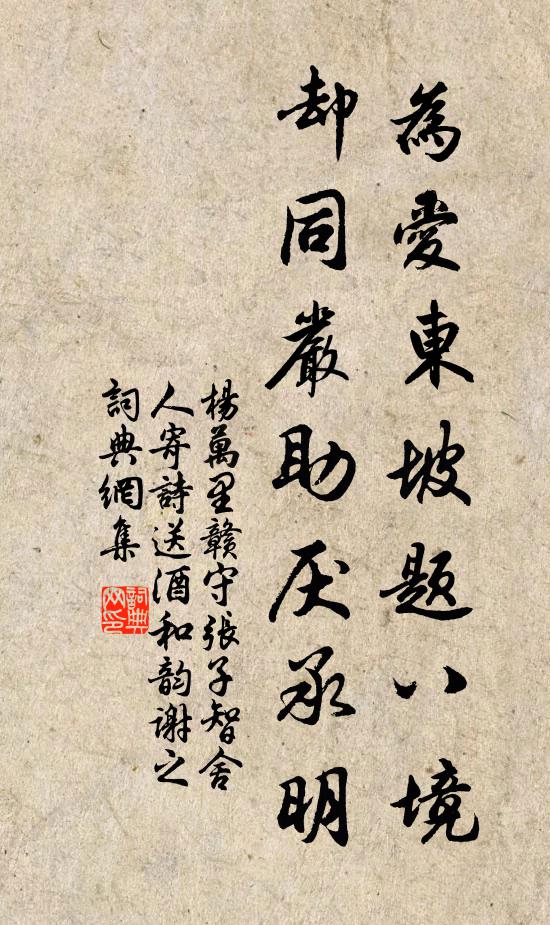 為愛東坡題八境
却同嚴助厌承明
楊萬里贛守張子智舍
人寄詩送酒和韵謝之
詞典網集
詞典
网印